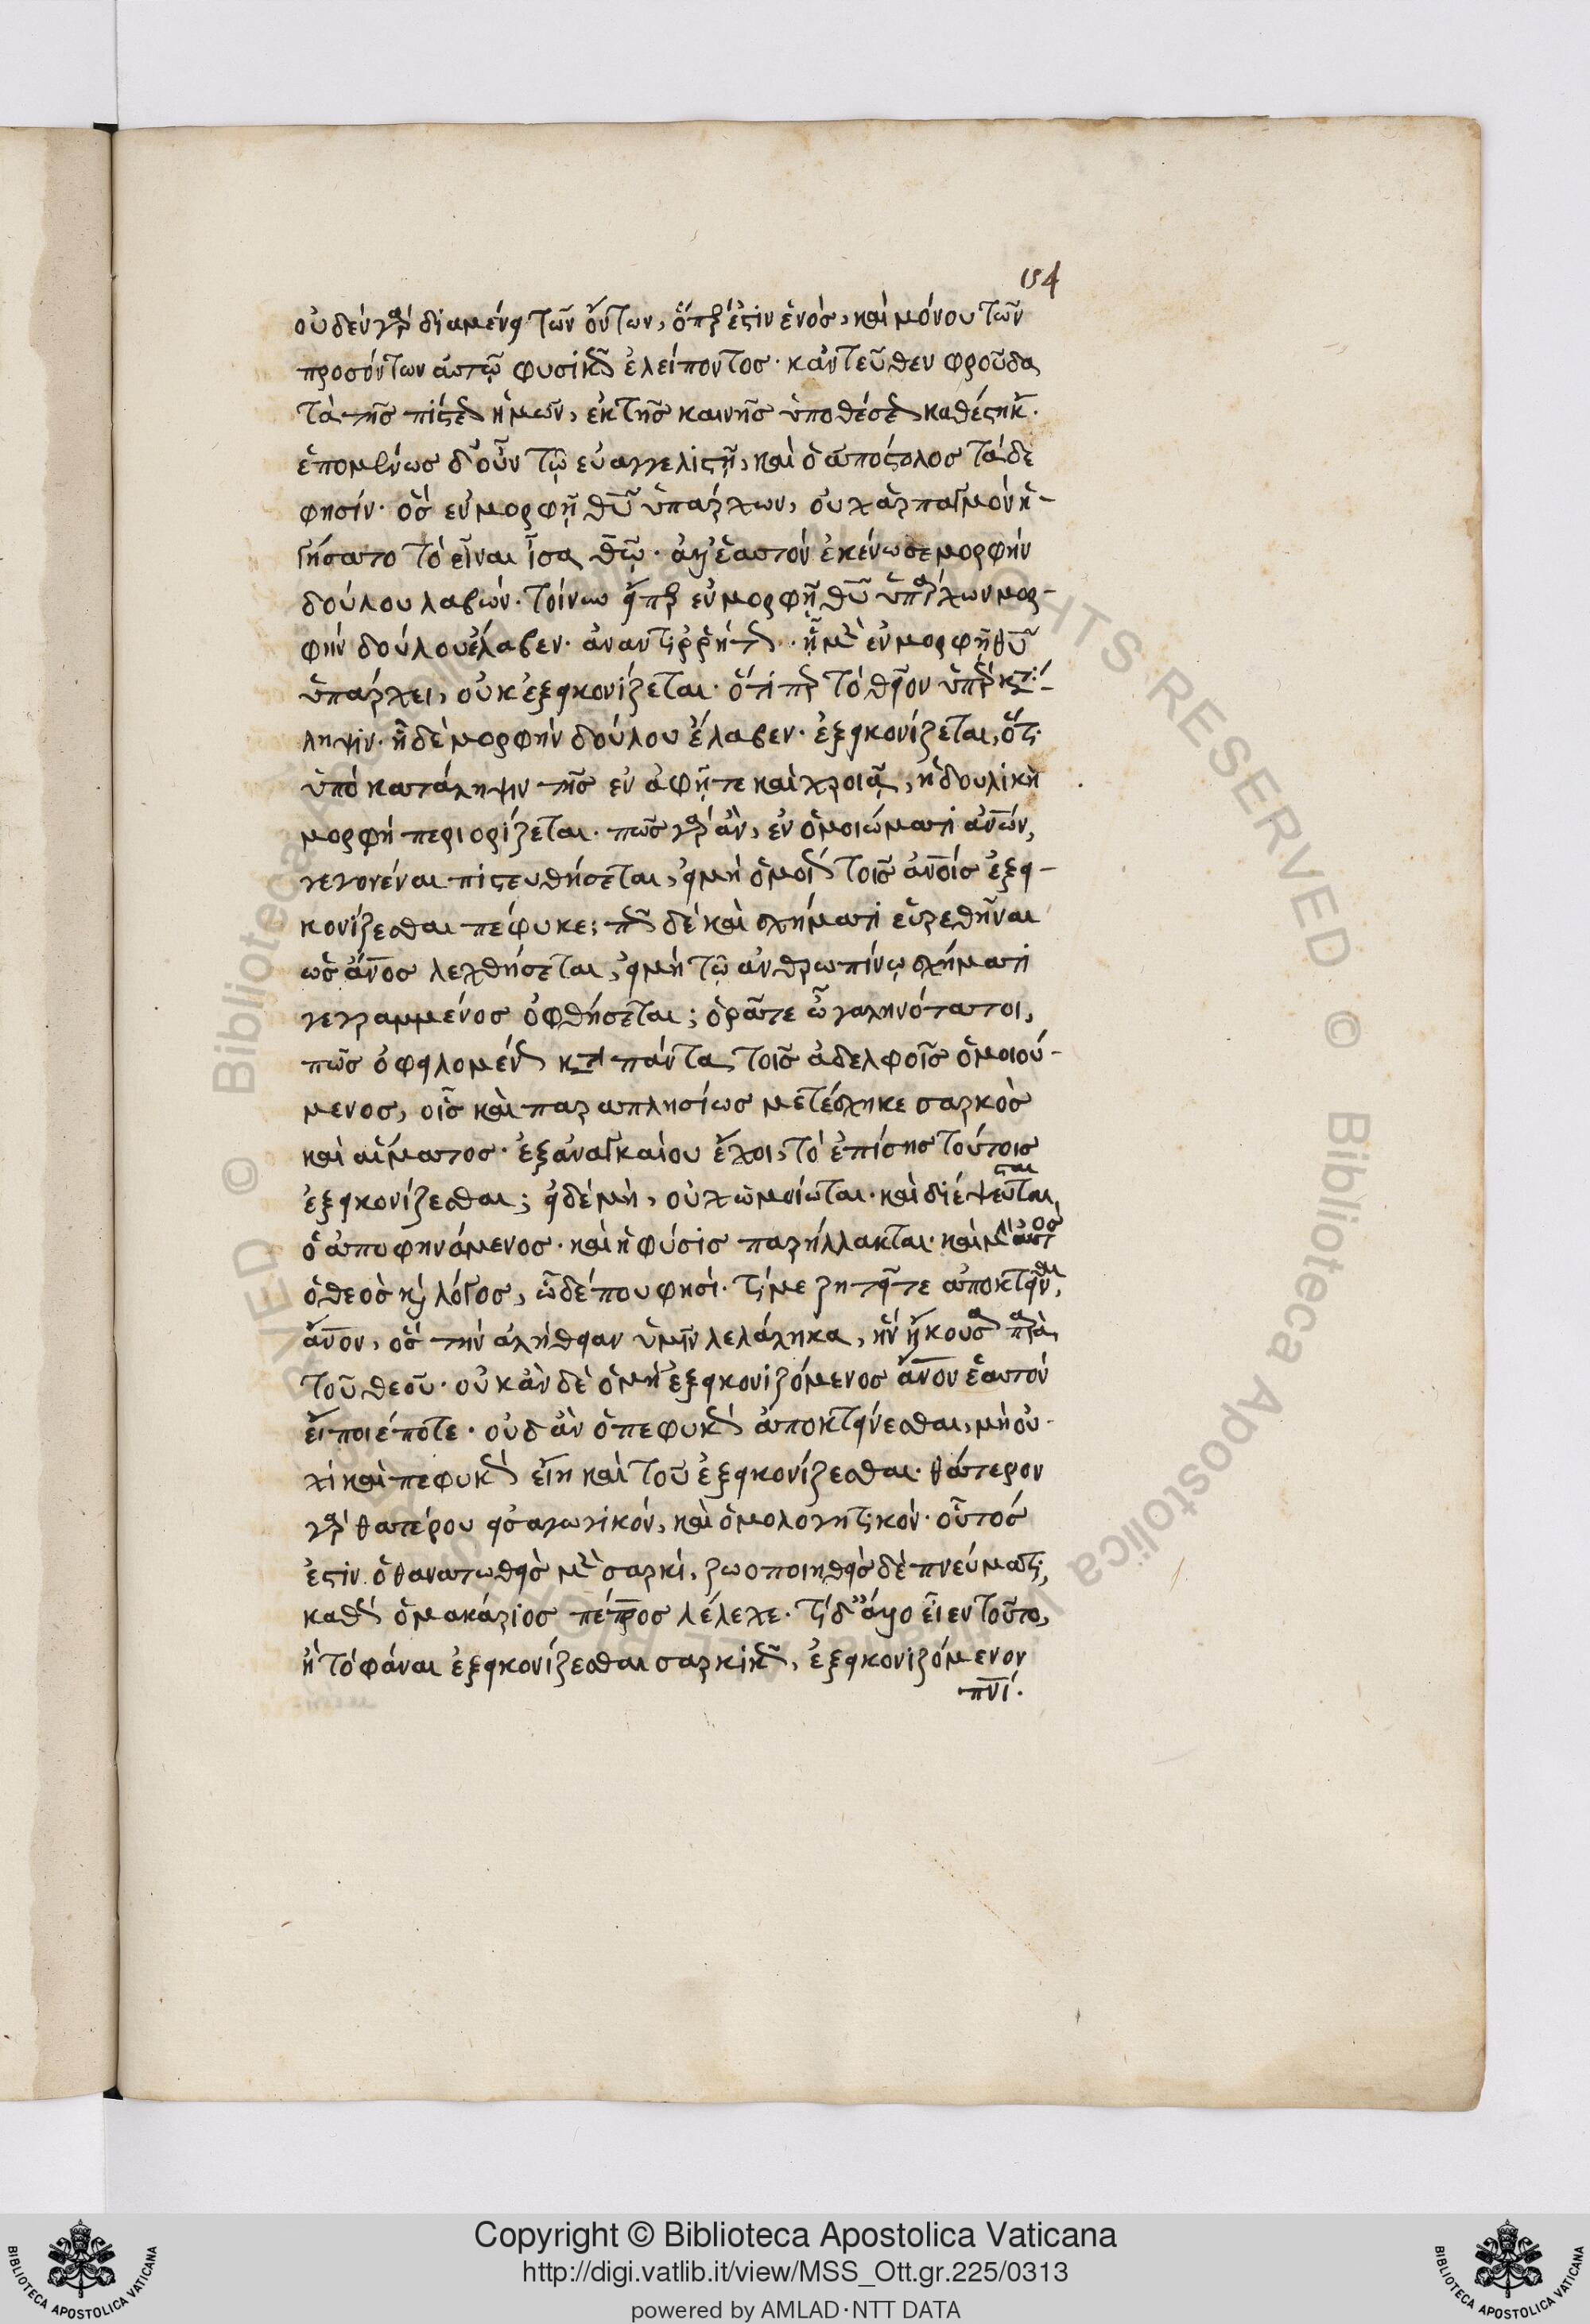 154
οὐδὲν γὰρ διαμένει τῶν ὄντων, ὅπερ ἐστὶν ἑνὸς, καὶ μόνου τῶν
προσόντων αὐτῷ φυσικῶς ἐλείποντος· κἀντεῦθεν φροῦδα
τὰ τῆς πίστεως ἡμῶν, ἐκ τῆς καινῆς ὑποθέσεως καθέστηκεν.
ἑπομένως δ' οὖν τῷ εὐαγγελιστῇ, καὶ ὁ ἀπόστολος τάδε
φησίν· ὃς ἐν μορφῇ θῦ ὑπάρχων, οὐχ ἁρπαγμὸν ἡ-
γήσατο τὸ εἶναι ἶσα θῷ· ἀλλ' ἑαυτὸν ἐκένωσε μορφὴν
δούλου λαβών· τοίνυν εἴπερ ἐν μορφῇ θῦ ὑπάρχων μορ-
φὴν δούλου ἔλαβεν· ἀναντιρρήτως· ᾗ μὲν ἐν μορφῇ θῦ
ὑπάρχει, οὐκ ἐξεικονίζεται· ὅτι περ τὸ θεῖον ὑπὲρ κατά-
ληψιν· ᾗ δὲ μορφὴν δούλου ἔλαβεν· ἐξεικονίζεται, ὅτι
ὑπὸ κατάληψιν τῆς ἐν ἀφῇ τε καὶ χροιᾷ, ἡ δουλικὴ
μορφὴ περιορίζεται· πῶς γὰρ ἂν, ἐν ὁμοιώματι ἀνῶν,
γεγονέναι πιστευθήσεται, εἰ μὴ ὁμοίως τοῖς ἀνοῖς ἐξει-
κονίζεσθαι πέφυκε; πῶς δὲ καὶ σχήματι εὑρεθῆναι
ὡς ἄνος λεχθήσεται, εἰ μὴ τῷ ἀνθρωπίνῳ σχήματι
γεγραμμένος ὀφθήσεται; ὁρᾶτε ὦ γαληνότατοι,
πῶς ὀφειλομένως κατὰ πάντα τοῖς ἀδελφοῖς ὁμοιού-
μενος, οἷς καὶ παραπλησίως μετέσχηκε σαρκὸς
καὶ αἵματος· ἐξ ἀναγκαίου ἔχοι, τὸ ἐπίσης τούτοις
ἐξεικονίζεσθαι; εἰ δὲ μὴ, οὐχ ὡμοίωται· καὶ διέψευσται
ὁ ἀποφηνάμενος· καὶ ἡ φύσις παρήλλακται· καὶ αὐτὸς
ὁ θεὸς καὶ λόγος, ὧδέ που φησί· τί με ζητεῖτε ἀποκτεῖναι,
ἄνον, ὃς τὴν ἀλήθειαν ὑμῖν λελάληκα, ἣν ἤκουσα παρὰ
τοῦ θεοῦ· οὐκ ἂν δὲ ὁ μὴ ἐξεικονιζόμενος ἄνον ἑαυτὸν
εἴποι ἐ ποτε· οὐδ' ἂν ὁ πεφυκὼς ἀποκτείνεσθαι, μὴ οὐ-
χὶ καὶ πεφυκὼς εἴη καὶ τοῦ ἐξεικονίζεσθαι· θάτερον
γὰρ θατέρου εἰσαγωγικόν, καὶ ὁμολογητικόν· οὗτός
ἐστιν ὁ θανατωθεὶς μὲν σαρκὶ, ζωοποιηθεὶς δὲ πνεύματι,
καθὼς ὁ μακάριος πέτρος λέλεχε· τί δ' ἄλλο εἴεν τοῦτο,
ἢ τὸ φάναι ἐξεικονίζεσθαι σαρκικῶς, ἐξεικονιζόμενον
πνί.